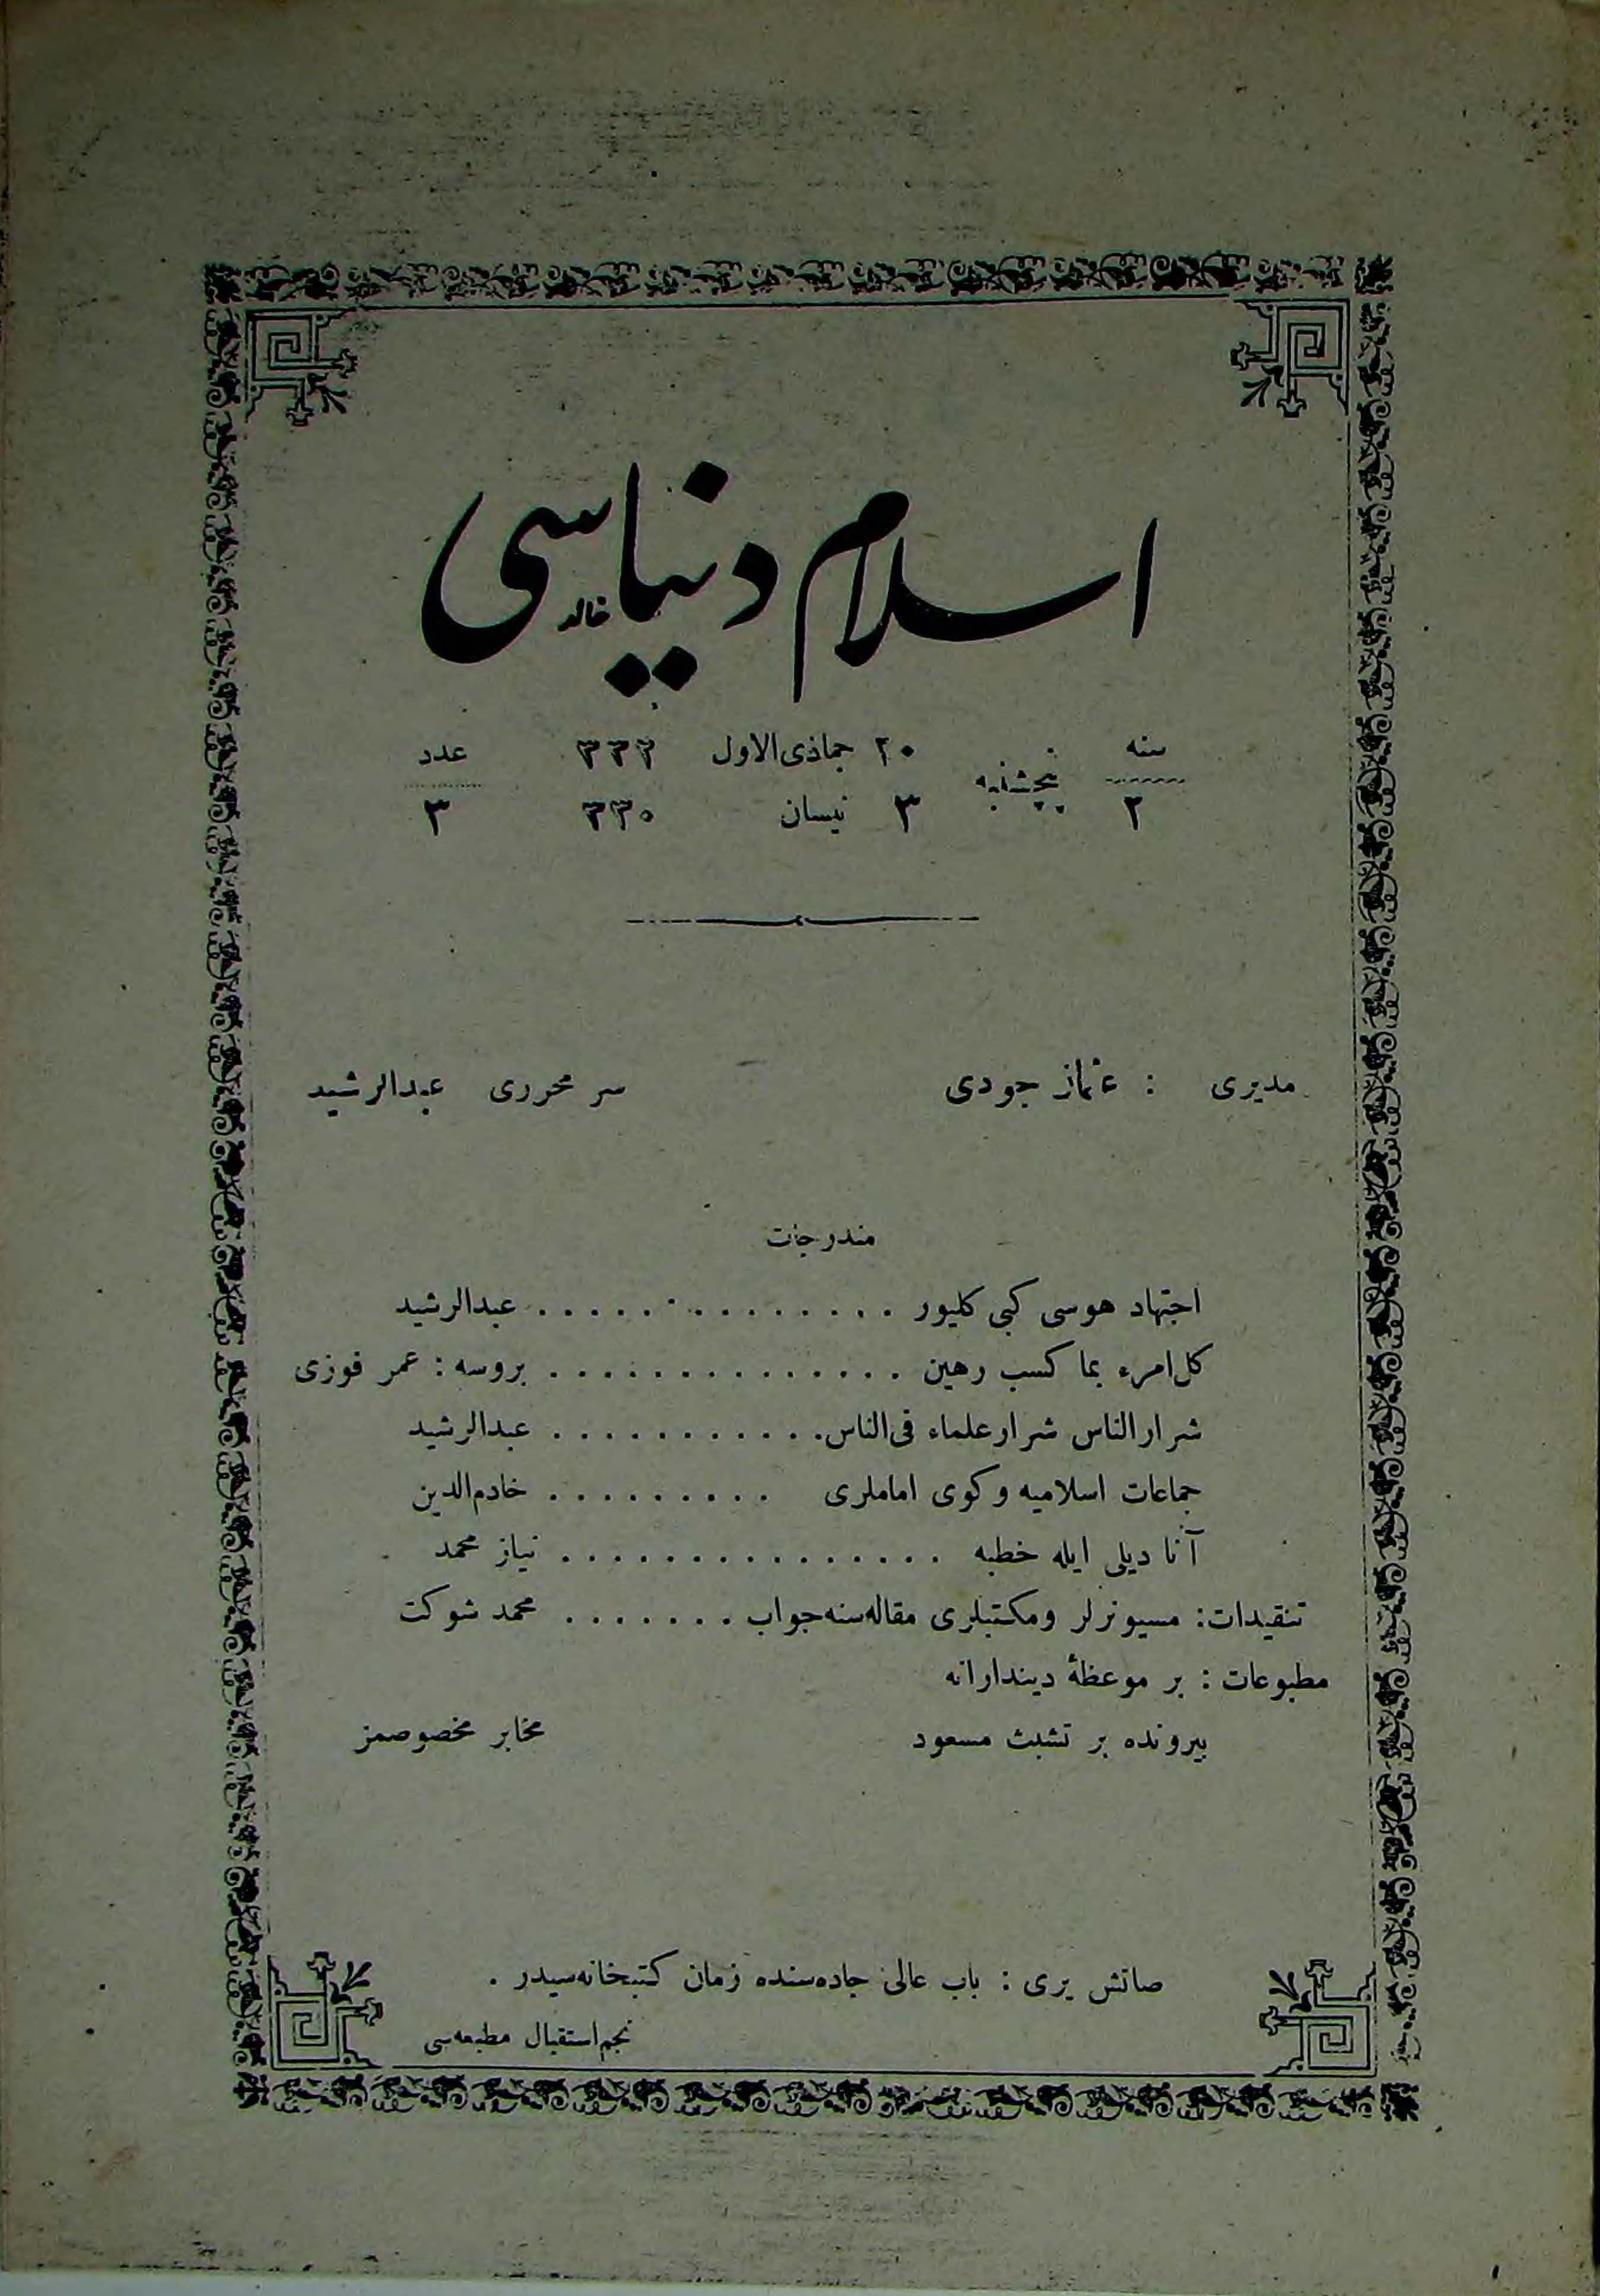 اسلام دنیاسی
خالد
سنه ۲ پنجشنبه ۲۰ جماذی‌الاول ۳۳۲ عدد ۳
۳ نیسان ۳۳۰
مدیری : عثمان جودی سر محرری عبدالرشید
مندرجات
اجتهاد هوسی کبی کلیور . . . . . . . . . . . . . . عبدالرشید
کل‌امرء بما کسب رهین . . . . . . . . . . . . . . بروسه : عمر فوزی
شرارالناس شرارعلماء فی‌الناس . . . . . . . . . . . عبدالرشید
جماعات اسلامیه و کوی اماملری . . . . . . . . . خادم‌الدین
آنا دیلی ایله خطبه . . . . . . . . . . . . . . . نیاز محمد
تنقیدات: مسیونرلر ومکتبلری مقاله‌سنه‌جواب . . . . . . . محمد شوکت
مطبوعات : بر موعظۀ دیندارانه
بیرونده بر تشبث مسعود مخابر مخصوصمز
صاتش یری : باب عالی جاده‌سنده زمان کتبخانه‌سیدر .
نجم‌استقبال مطبعه‌سی